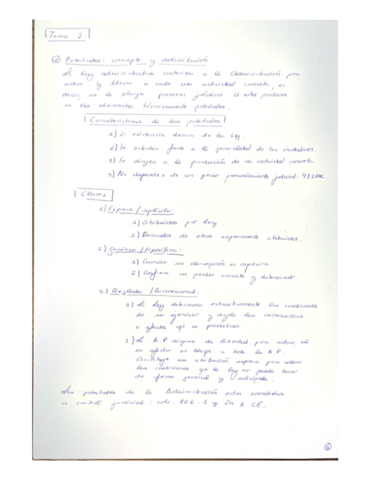 Tema 2.
a) Potestades: concepto y delimitación.
La ley administrativa autoriza a la Administración para
actuar y llevar a cabo una actividad concreta, es
decir, se le otorga poderes jurídicos. A estos poderes
se les denomina técnicamente potestades.
Características de las potestades
1) Su existencia deriva de la ley.
2) Se ejercitan frente a la generalidad de los ciudadanos.
3) Se dirigen a la producción de una actividad concreta.
4) No dependen de un previo pronunciamiento judicial.
Clases
1) Expresa / implícita:
1) Atribuidas por ley
2) Derivadas de otras expresamente atribuidas.
2) Genérica / Específica:
1) Cuando su es genérica
2) Confiere un poder concreto y determinado.
3) Reglada / Discrecional:
1) La ley determina exhaustivamente las condiciones
de su ejercicio y regula las consecuencias
o efectos que se producirán.
2) La A.P. dispone de libertad para actuar, en
su
Constituye una atribución expresa para valorar
las condiciones que la ley no puede tener
de forma general y anticipada.
Las potestades de la Administración están sometidas
a control judicial: arts. 106.1 y 24.1 CE.